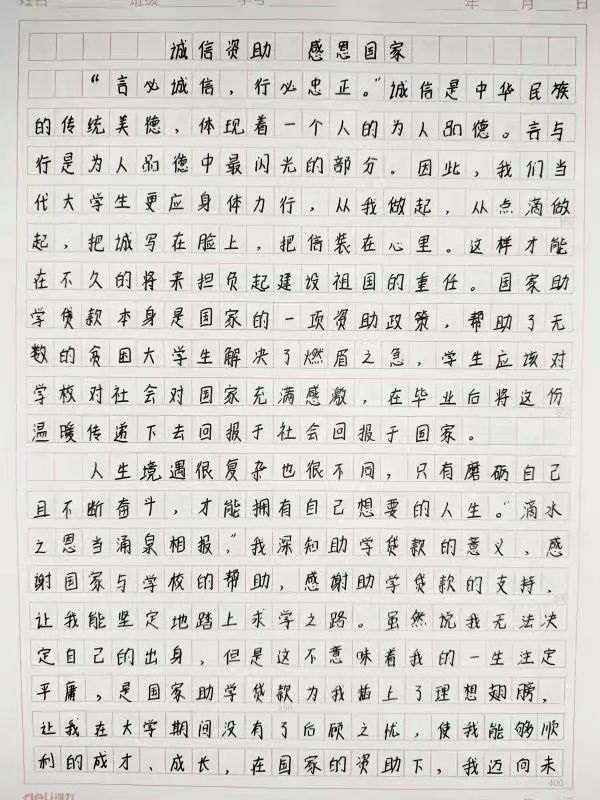 姓名 班级 学号 年 月 日
诚信资助 感恩国家
“言必诚信，行必忠正。”诚信是中华民族
的传统美德，体现着一个人的为人品德。言与
行是为人品德中最闪光的部分。因此，我们当
代大学生更应身体力行，从我做起，从点滴做
起，把诚写在脸上，把信装在心里。这样才能
在不久的将来担负起建设祖国的重任。国家助
学贷款本身是国家的一项资助政策，帮助了无
数的贫困大学生解决了燃眉之急，学生应该对
学校对社会对国家充满感激，在毕业后将这份
温暖传递下去回报于社会回报于国家。
人生境遇很复杂也很不同，只有磨砺自己
且不断奋斗，才能拥有自己想要的人生。“滴水
之恩当涌泉相报，”我深知助学贷款的意义，感
谢国家与学校的帮助，感谢助学贷款的支持，
让我能坚定地踏上求学之路。虽然说我无法决
定自己的出身，但是这不意味着我的一生注定
平庸，是国家助学贷款为我插上了理想翅膀，
让我在大学期间没有了后顾之忧，使我能够顺
利的成才、成长，在国家的资助下，我迈向未
400
deli得力